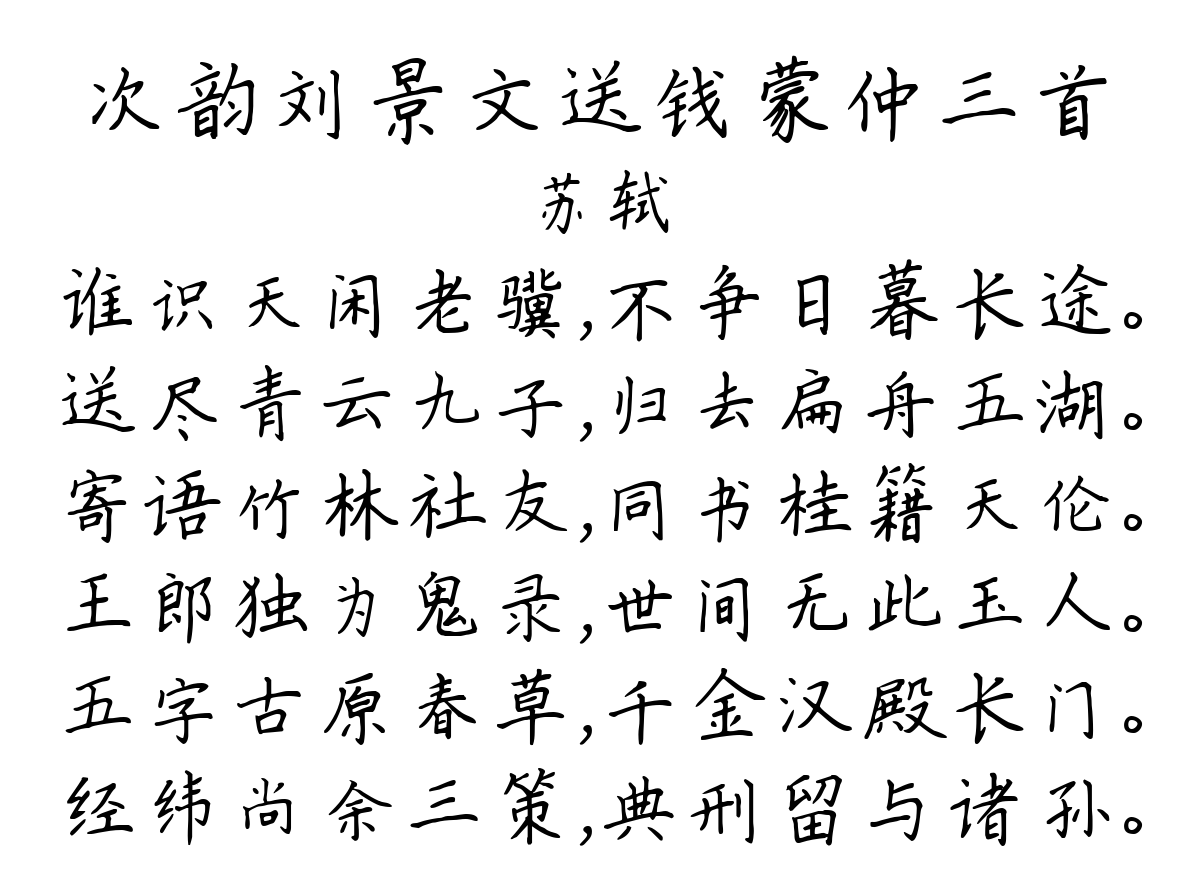 次韵刘景文送钱蒙仲三首
苏轼
谁识天闲老骥,不争日暮长途。
送尽青云九子,归去扁舟五湖。
寄语竹林社友,同书桂籍天伦。
王郎独为鬼录,世间无此玉人。
五字古原春草,千金汉殿长门。
经纬尚余三策,典刑留与诸孙。